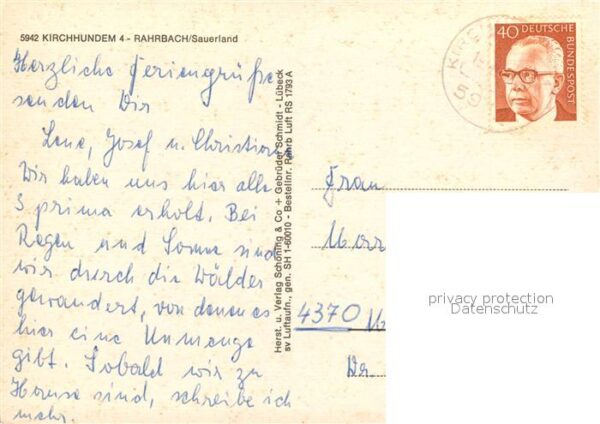 5942 KIRCHHUNDEM 4 - RAHRBACH/Sauerland
Herzliche Feriengrüße
senden Dir
Lene, Josef u. Christiane
Wir haben uns hier alle
3 prima erholt. Bei
Regen und Sonne sind
wir durch die Wälder
gewandert, von denen es
hier eine Unmenge
gibt. Sobald wir zu
Hause sind, schreibe ich
mehr.
Herst. u. Verlag Schöning & Co + Gebrüder Schmidt - Lübeck
sv Luftaufn., gen. SH 1-60010 - Bestellnr. Rahrb Luft RS 1793 A
40 DEUTSCHE
BUNDESPOST
KIR
59
Frau
4370
privacy protection
Datenschutz